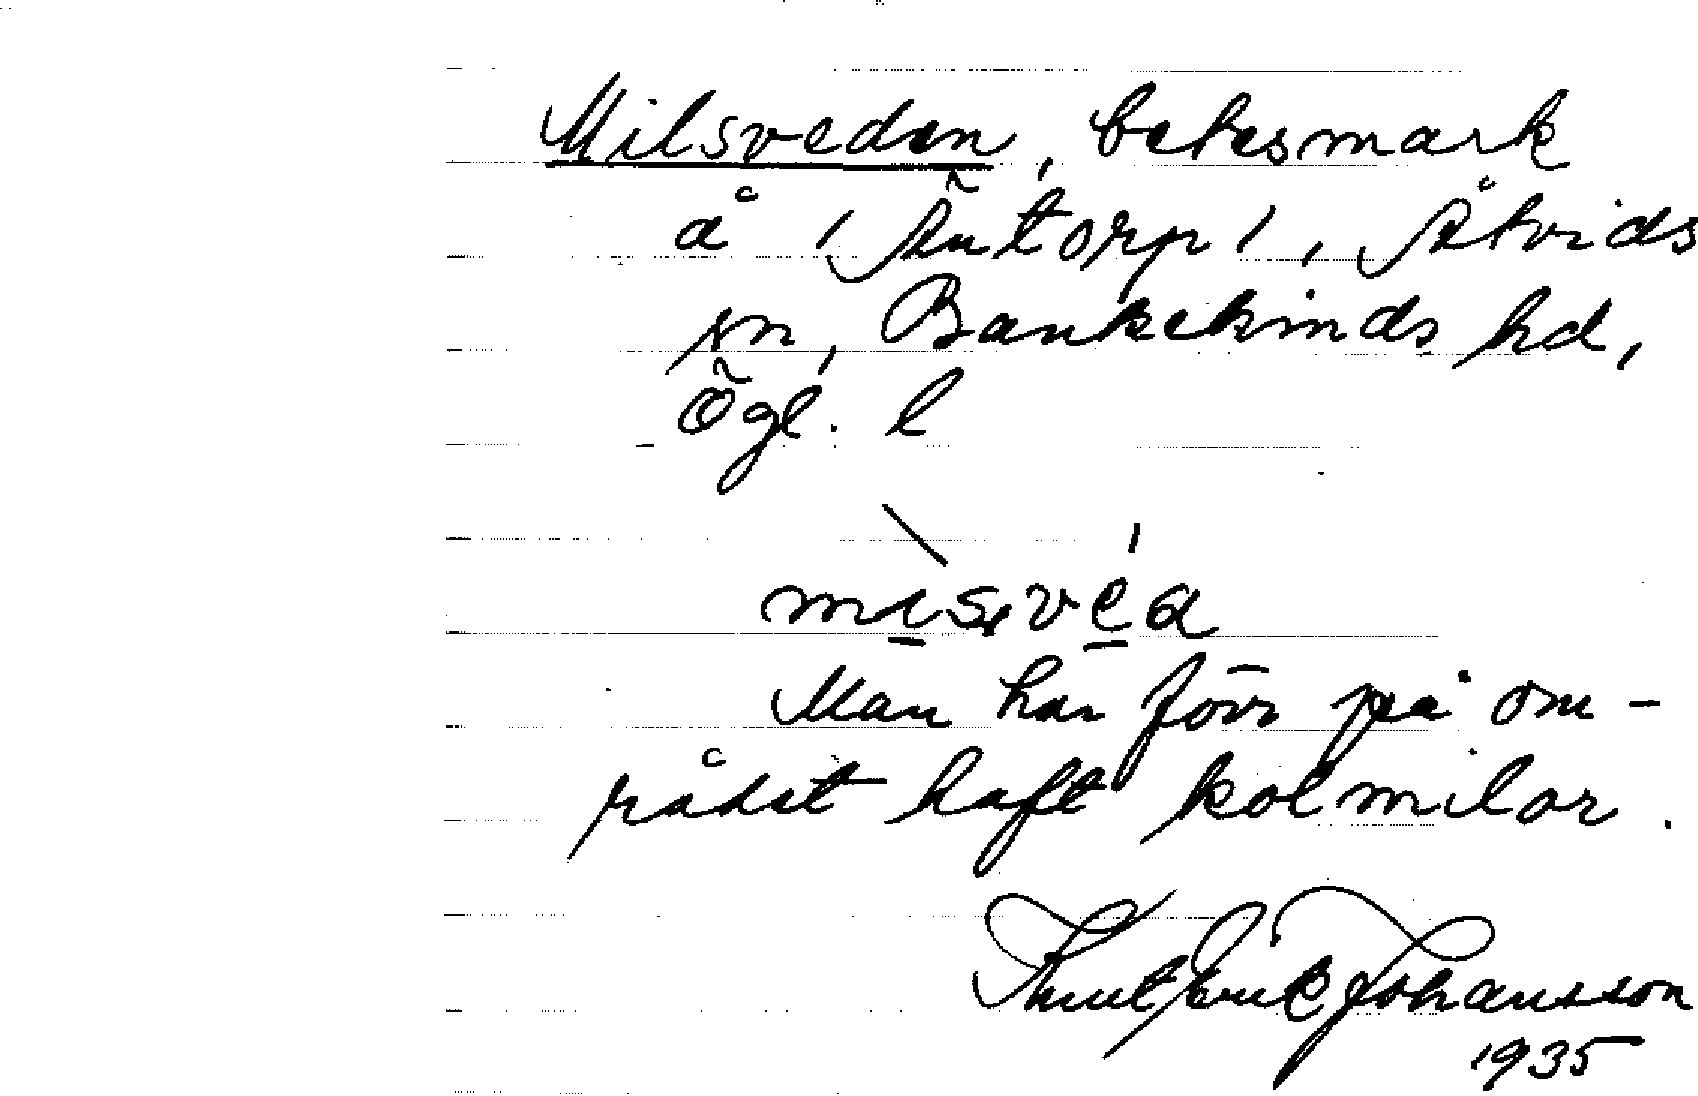 Milsveden, betesmark
å /Äntorp/, Åtvids
sn, Bankekinds hd,
Ögl. l
misvéa
Man har förr på om-
rådet haft kolmilor.
Knut Erik Johansson
1935